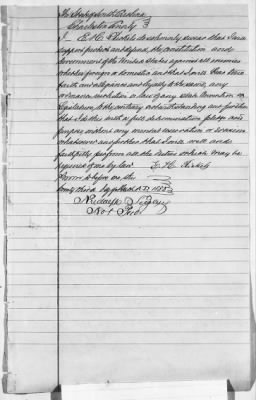 The State of South Carolina
Charleston County
I E. H. do solemnly swear that I will
support protect and defend, the constitution and
Government of the United States against all enemies
whether foreign or domestic and that I will bear true
faith and allegiance and loyalty to the same, any
ordinance resolution or law of any State Convention or
Legislature, to the contrary notwithstanding and further
that I do this with a full determination pledge and
purpose without any mental reservation or evasion
whatsoever and further that I will well and
faithfully perform all the duties which may be
required of me by law E. H.
Sworn to before me, this
day of A.D.
Not Pub